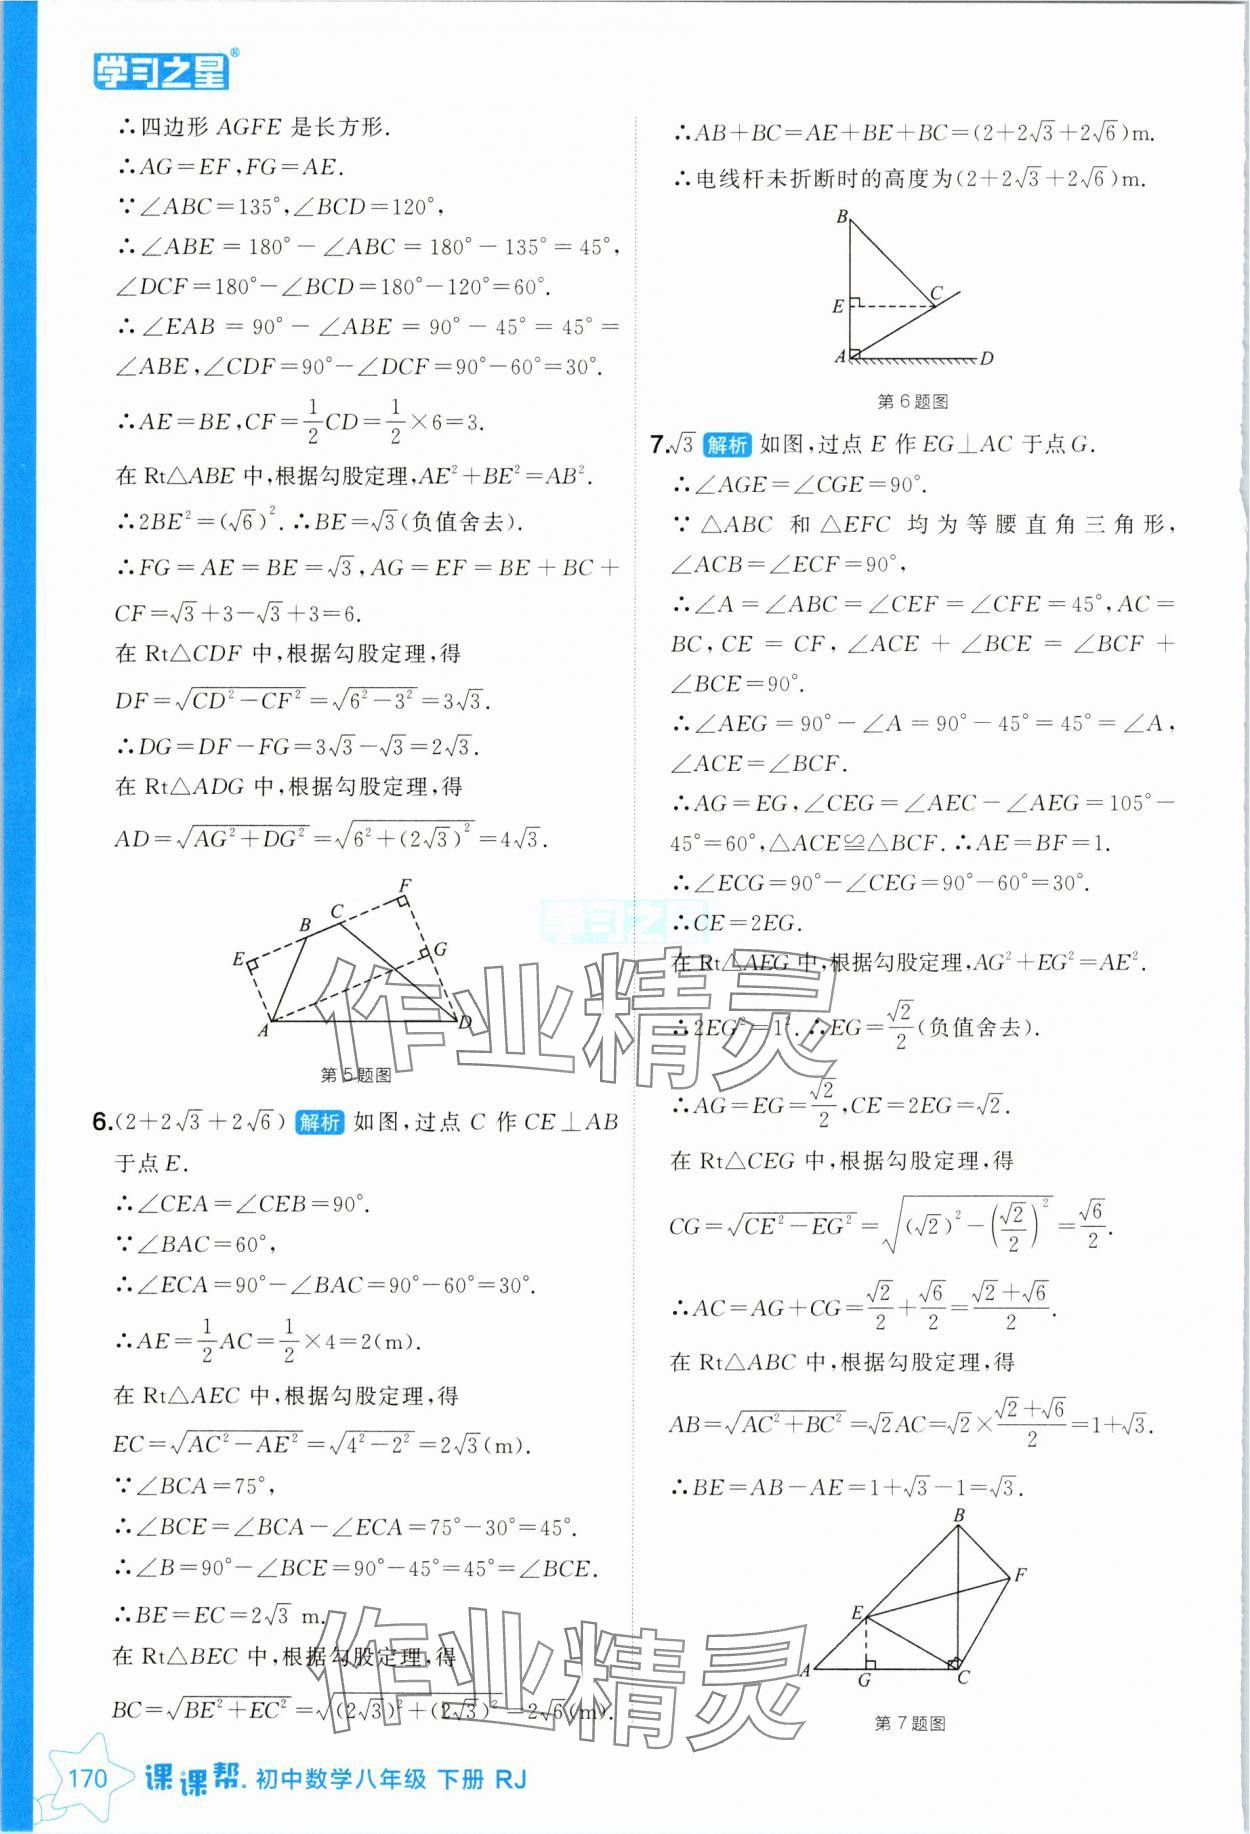 学习之星®
∴四边形 AGFE 是长方形.
∴AG=EF,FG=AE.
∵∠ABC=135°,∠BCD=120°,
∴∠ABE=180°-∠ABC=180°-135°=45°,
∠DCF=180°-∠BCD=180°-120°=60°.
∴∠EAB=90°-∠ABE=90°-45°=45°=
∠ABE,∠CDF=90°-∠DCF=90°-60°=30°.
∴AE=BE,CF=1/2CD=1/2×6=3.
在 Rt△ABE 中,根据勾股定理,AE²+BE²=AB².
∴2BE²=(√6)².∴BE=√3(负值舍去).
∴FG=AE=BE=√3,AG=EF=BE+BC+
CF=√3+3-√3+3=6.
在 Rt△CDF 中,根据勾股定理,得
DF=√(CD²-CF²)=√(6²-3²)=3√3.
∴DG=DF-FG=3√3-√3=2√3.
在 Rt△ADG 中,根据勾股定理,得
AD=√(AG²+DG²)=√(6²+(2√3)²)=4√3.
F
C
B
G
E
A
D
第5题图
6.(2+2√3+2√6) 解析 如图,过点 C 作 CE⊥AB
于点 E.
∴∠CEA=∠CEB=90°.
∵∠BAC=60°,
∴∠ECA=90°-∠BAC=90°-60°=30°.
∴AE=1/2AC=1/2×4=2(m).
在 Rt△AEC 中,根据勾股定理,得
EC=√(AC²-AE²)=√(4²-2²)=2√3(m).
∵∠BCA=75°,
∴∠BCE=∠BCA-∠ECA=75°-30°=45°.
∴∠B=90°-∠BCE=90°-45°=45°=∠BCE.
∴BE=EC=2√3 m.
在 Rt△BEC 中,根据勾股定理,得
BC=√(BE²+EC²)=√((2√3)²+(2√3)²)=2√6(m).
∴AB+BC=AE+BE+BC=(2+2√3+2√6)m.
∴电线杆未折断时的高度为(2+2√3+2√6)m.
B
C
E
A
D
第6题图
7.√3 解析 如图,过点 E 作 EG⊥AC 于点 G.
∴∠AGE=∠CGE=90°.
∵△ABC 和△EFC 均为等腰直角三角形,
∠ACB=∠ECF=90°,
∴∠A=∠ABC=∠CEF=∠CFE=45°,AC=
BC,CE=CF,∠ACE+∠BCE=∠BCF+
∠BCE=90°.
∴∠AEG=90°-∠A=90°-45°=45°=∠A,
∠ACE=∠BCF.
∴AG=EG,∠CEG=∠AEC-∠AEG=105°-
45°=60°,△ACE≌△BCF.∴AE=BF=1.
∴∠ECG=90°-∠CEG=90°-60°=30°.
∴CE=2EG.
在 Rt△AEG 中,根据勾股定理,AG²+EG²=AE².
∴2EG²=1².∴EG=√2/2(负值舍去).
∴AG=EG=√2/2,CE=2EG=√2.
在 Rt△CEG 中,根据勾股定理,得
CG=√(CE²-EG²)=√((√2)²-(√2/2)²)=√6/2.
∴AC=AG+CG=√2/2+√6/2=(√2+√6)/2.
在 Rt△ABC 中,根据勾股定理,得
AB=√(AC²+BC²)=√2AC=√2×(√2+√6)/2=1+√3.
∴BE=AB-AE=1+√3-1=√3.
B
F
E
A
G
C
第7题图
学习之星
作业精灵
作业精灵
170 课课帮.初中数学八年级 下册 RJ